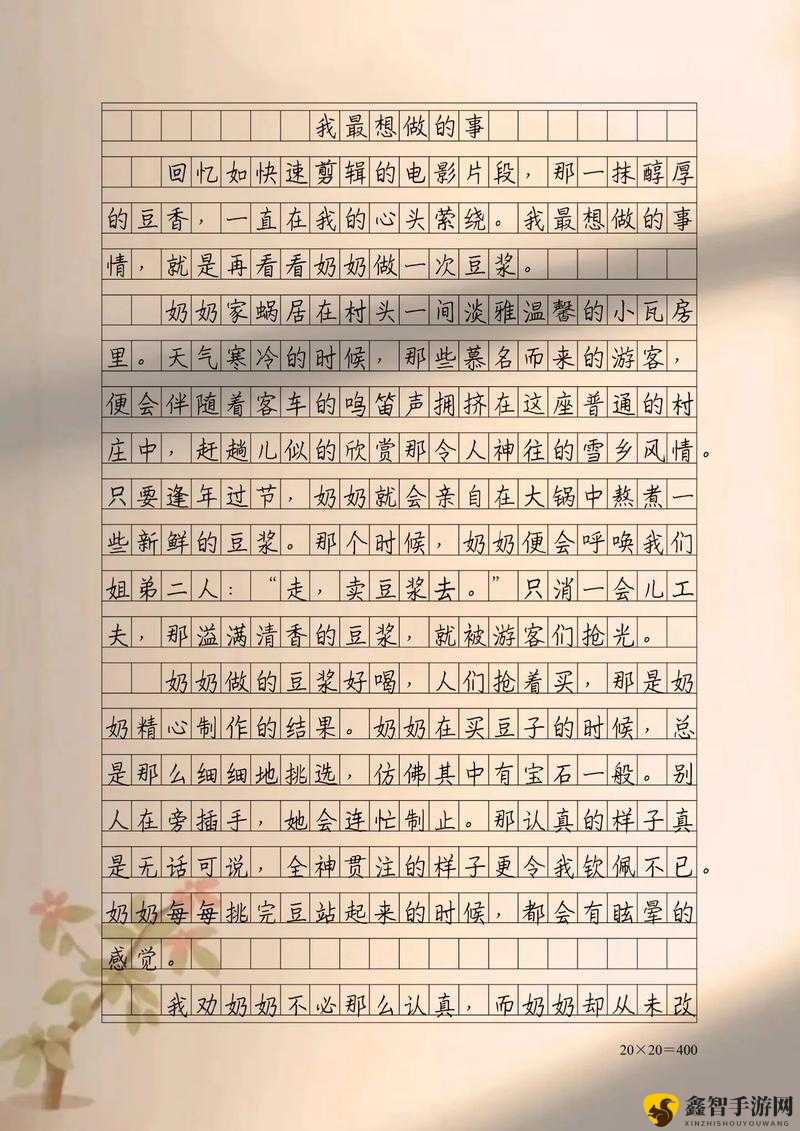 我最想做的事
回忆如快速剪辑的电影片段，那一抹醇厚
的豆香，一直在我的心头萦绕。我最想做的事
情，就是再看看奶奶做一次豆浆。
奶奶家蜗居在村头一间淡雅温馨的小瓦房
里。天气寒冷的时候，那些慕名而来的游客，
便会伴随着客车的鸣笛声拥挤在这座普通的村
庄中，赶趟儿似的欣赏那令人神往的雪乡风情。
只要逢年过节，奶奶就会亲自在大锅中熬煮一
些新鲜的豆浆。那个时候，奶奶便会呼唤我们
姐弟二人：“走，卖豆浆去。”只消一会儿工
夫，那溢满清香的豆浆，就被游客们抢光。
奶奶做的豆浆好喝，人们抢着买，那是奶
奶精心制作的结果。奶奶在买豆子的时候，总
是那么细细地挑选，仿佛其中有宝石一般。别
人在旁插手，她会连忙制止。那认真的样子真
是无话可说，全神贯注的样子更令我钦佩不已。
奶奶每每挑完豆站起来的时候，都会有眩晕的
感觉。
我劝奶奶不必那么认真，而奶奶却从未改
20×20=400
鑫智手游网
XINZHISHOUYOUWANG